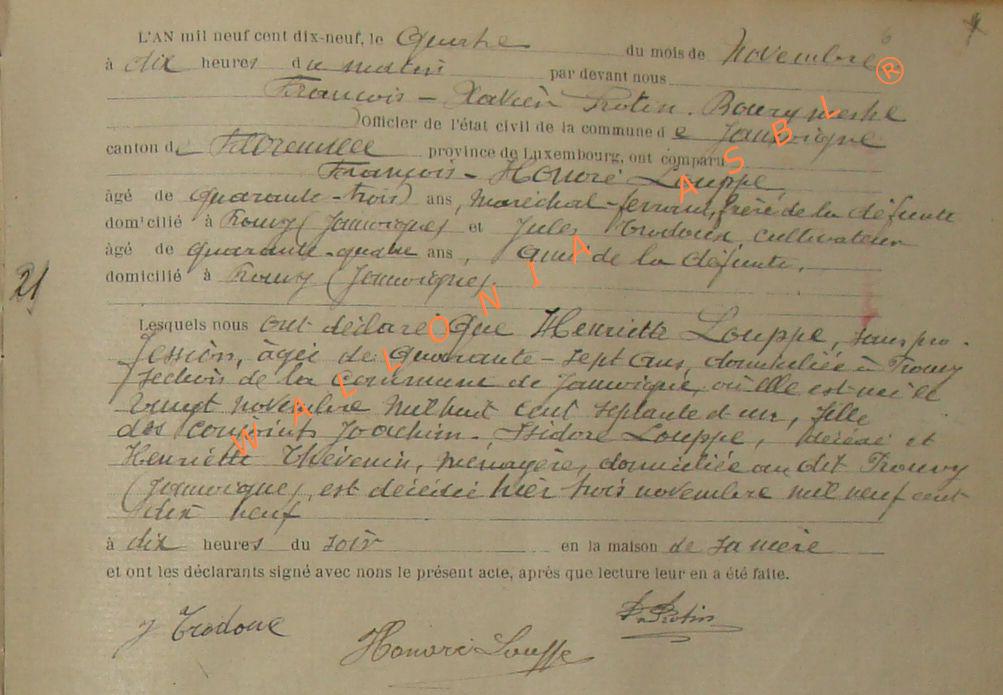 L'AN mil neuf cent dix-neuf, le Quatre du mois de Novembre
à dix heures du matin par devant nous
François - Xavier Protin. Bourgmestre
Officier de l'état civil de la commune de Jamoigne
canton de Florenville province de Luxembourg, ont comparu
François - Honoré Louppe
âgé de quarante-trois ans, maréchal-ferrant, frère de la défunte
domicilié à Prouvy (Jamoigne) et Jules Trodoux, cultivateur
âgé de quarante-quatre ans, ami de la défunte,
domicilié à Prouvy (Jamoigne).
21
Lesquels nous ont déclaré que Henriette Louppe, sans pro-
fession, âgée de quarante-sept ans, domiciliée à Prouvy
section de la commune de Jamoigne, où elle est née le
vingt novembre mil huit cent septante et un, fille
des conjoints Joachim-Isidore Louppe, décédé et
Henriette Thévenin, ménagère, domiciliée au dit Prouvy
(Jamoigne), est décédée hier trois novembre mil neuf cent
dix neuf
à dix heures du soir en la maison de sa mère
et ont les déclarants signé avec nous le présent acte, après que lecture leur en a été faite.
J Trodoux
Honoré Louppe
Protin
WALLONIA ASBL ®